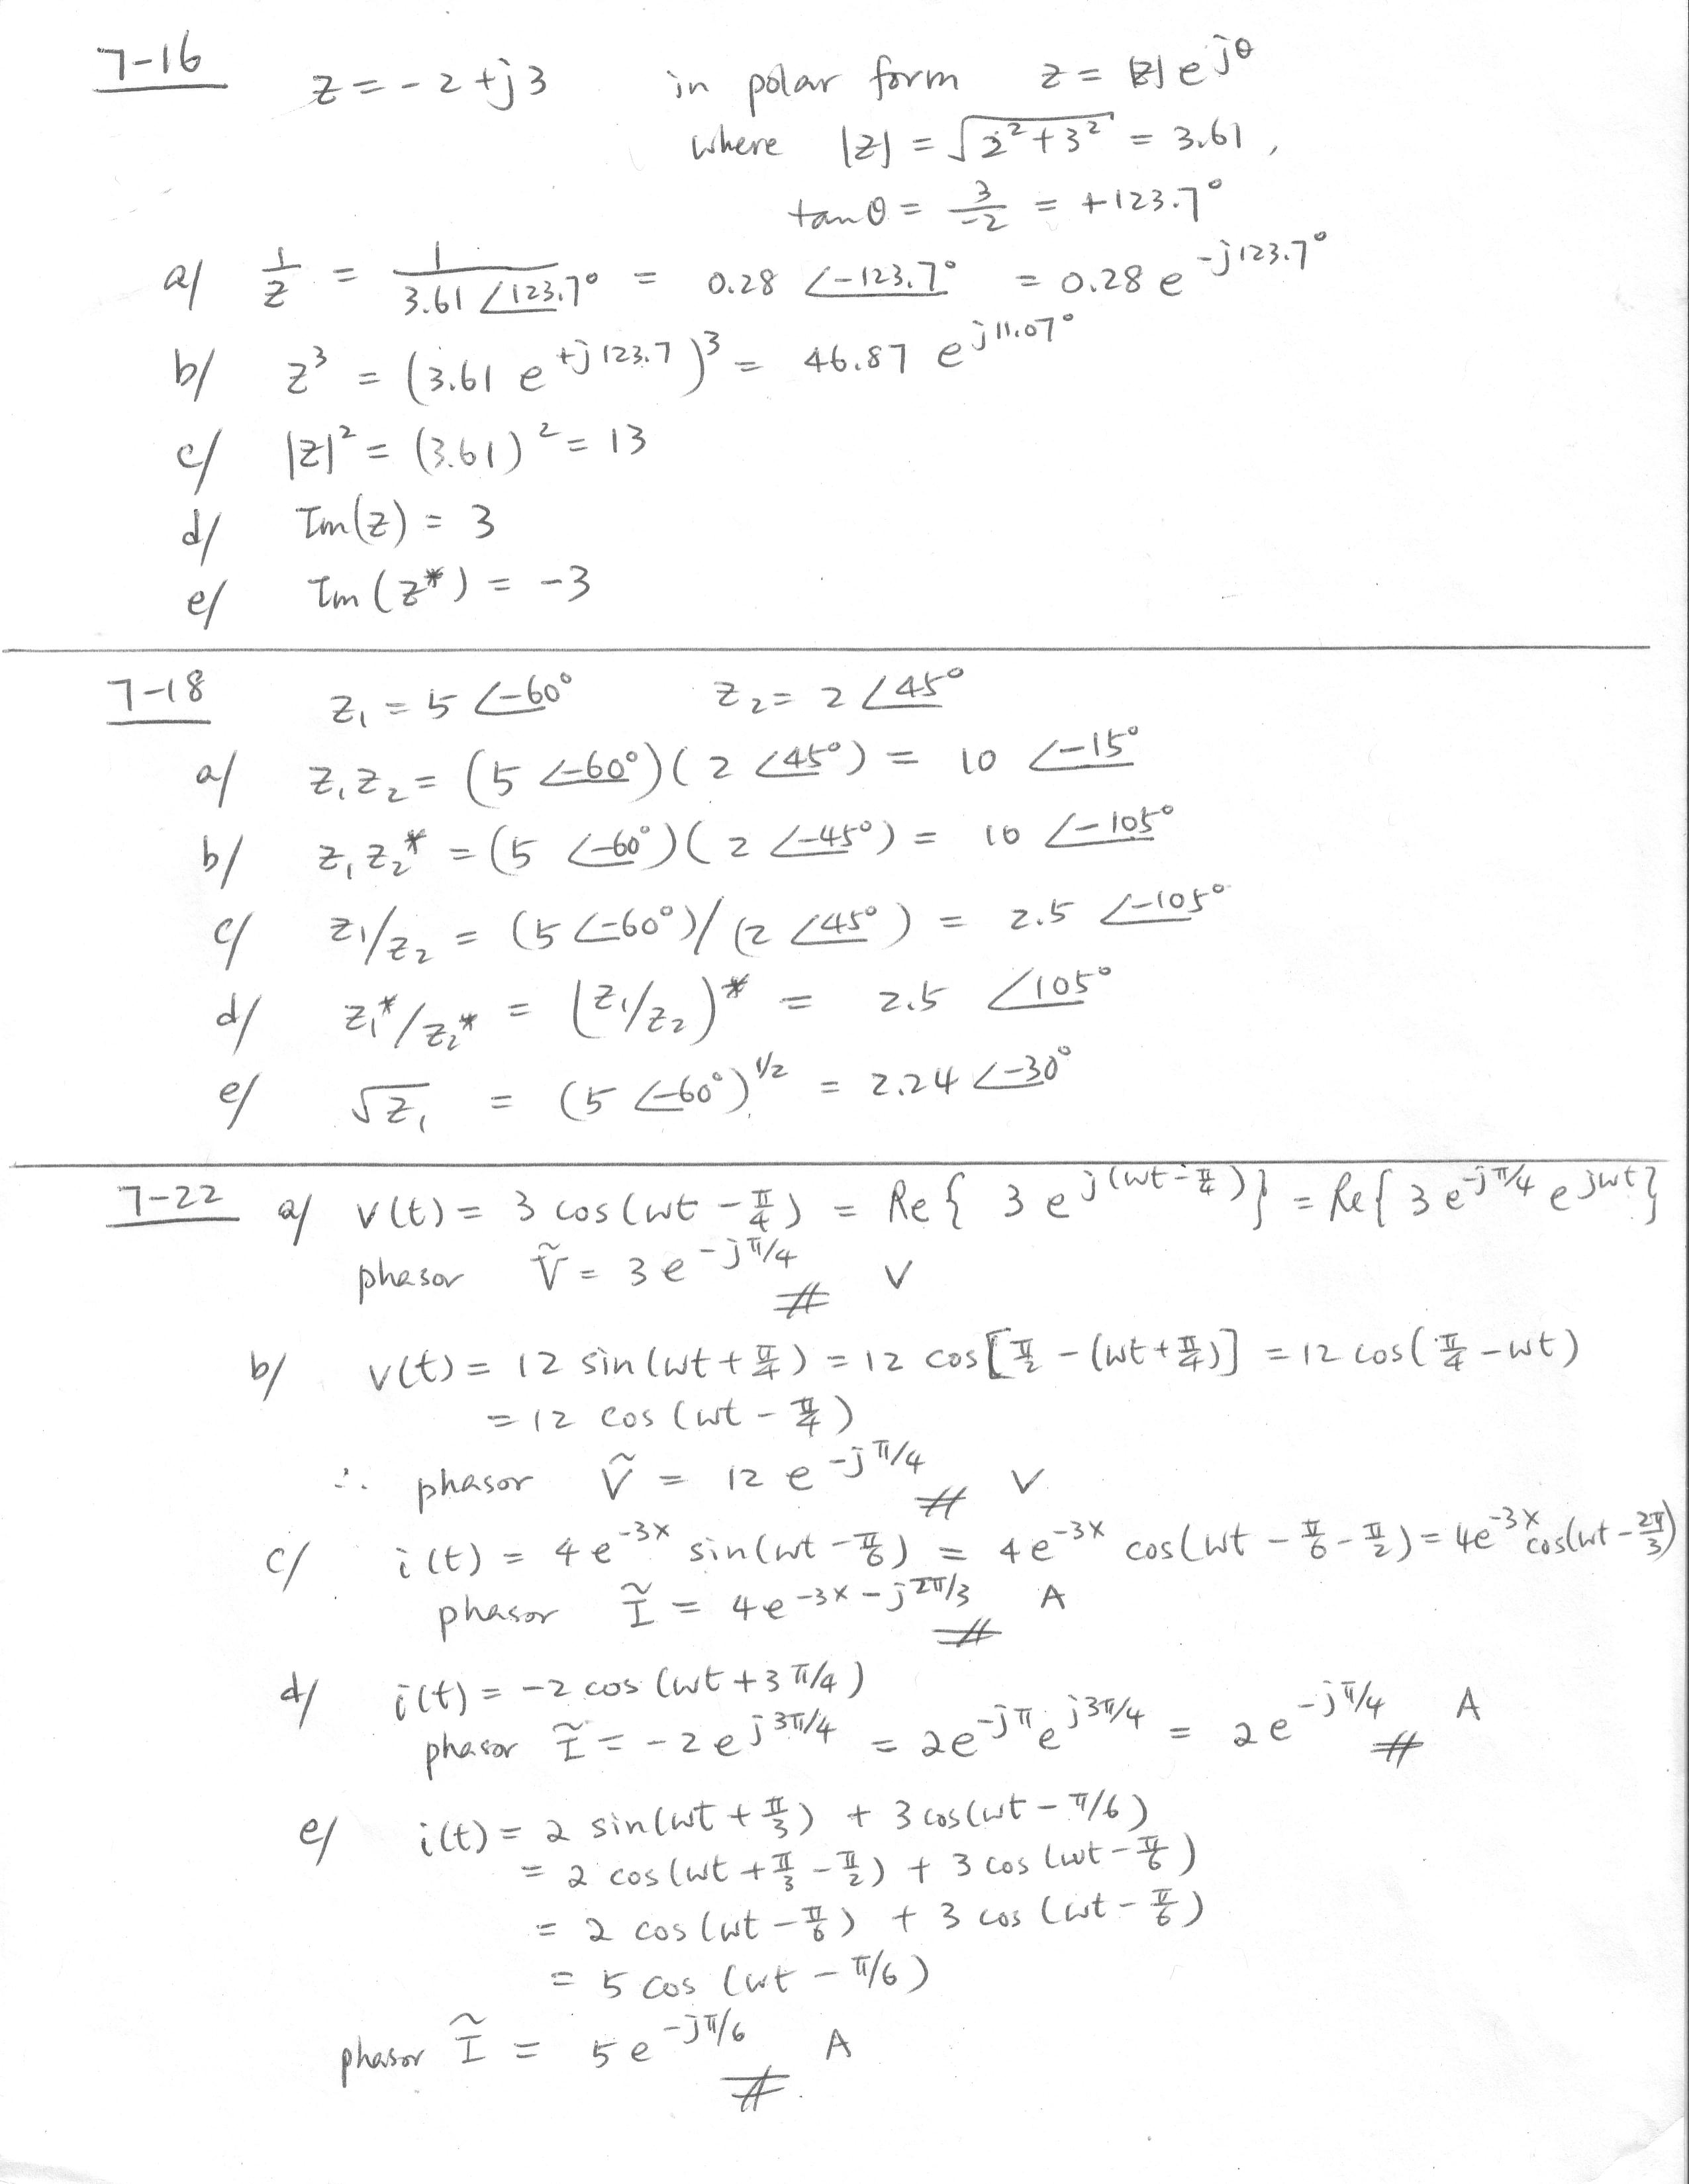 7-16
z = -2 + j3 in polar form z = |z| e^{jθ}
where |z| = √(2² + 3²) = 3.61 ,
tan θ = 3/-2 = +123.7°
a/ 1/z = 1/(3.61 ∠123.7°) = 0.28 ∠-123.7° = 0.28 e^{-j123.7°}
b/ z³ = (3.61 e^{+j123.7})³ = 46.87 e^{j11.07°}
c/ |z|² = (3.61)² = 13
d/ Im(z) = 3
e/ Im(z*) = -3
7-18 z₁ = 5 ∠-60° z₂ = 2 ∠45°
a/ z₁z₂ = (5 ∠-60°)(2 ∠45°) = 10 ∠-15°
b/ z₁z₂* = (5 ∠-60°)(2 ∠-45°) = 10 ∠-105°
c/ z₁/z₂ = (5 ∠-60°)/(2 ∠45°) = 2.5 ∠-105°
d/ z₁*/z₂* = (z₁/z₂)* = 2.5 ∠105°
e/ √z₁ = (5 ∠-60°)^{1/2} = 2.24 ∠-30°
7-22 a/ v(t) = 3 cos(ωt - π/4) = Re{ 3 e^{j(ωt-π/4)} } = Re{ 3 e^{-jπ/4} e^{jωt} }
phasor Ṽ = 3 e^{-jπ/4} # V
b/ v(t) = 12 sin(ωt + π/4) = 12 cos[π/2 - (ωt + π/4)] = 12 cos(π/4 - ωt)
= 12 cos (ωt - π/4)
∴ phasor Ṽ = 12 e^{-jπ/4} # V
c/ i(t) = 4 e^{-3x} sin(ωt - π/6) = 4 e^{-3x} cos(ωt - π/6 - π/2) = 4e^{-3x} cos(ωt - 2π/3)
phasor Ĩ = 4 e^{-3x - j2π/3} # A
d/ i(t) = -2 cos (ωt + 3π/4)
phasor Ĩ = -2 e^{j3π/4} = 2e^{-jπ} e^{j3π/4} = 2 e^{-jπ/4} # A
e/ i(t) = 2 sin(ωt + π/3) + 3 cos(ωt - π/6)
= 2 cos(ωt + π/3 - π/2) + 3 cos (ωt - π/6)
= 2 cos (ωt - π/6) + 3 cos (ωt - π/6)
= 5 cos (ωt - π/6)
phasor Ĩ = 5 e^{-jπ/6} # A